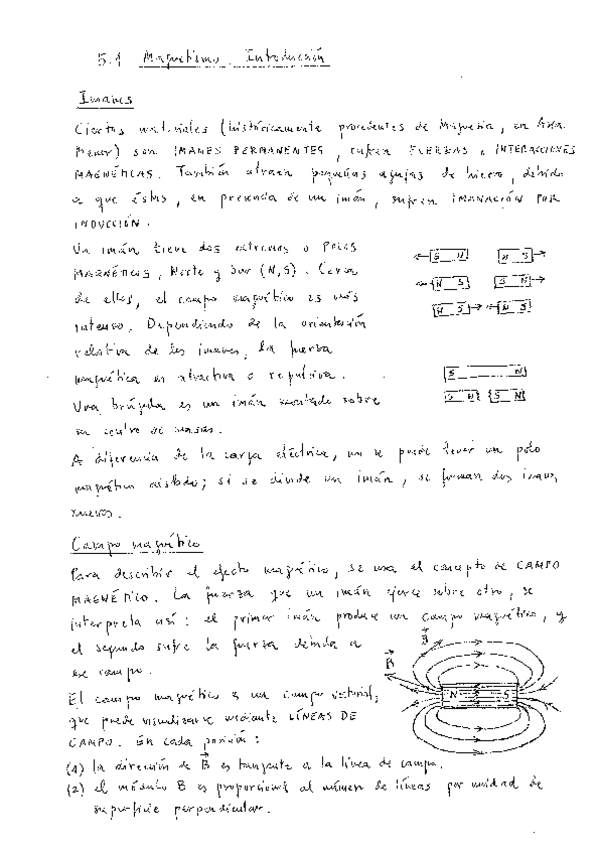 5.1 Magnetismo. Introducción
Imanes
Ciertos materiales (históricamente procedentes de Magnesia, en Asia
Menor) son IMANES PERMANENTES, sufren FUERZAS e INTERACCIONES
MAGNÉTICAS. También atraen pequeñas agujas de hierro, debido
a que éstas, en presencia de un imán, sufren IMANACIÓN POR
INDUCCIÓN.
Un imán tiene dos extremos o POLOS
MAGNÉTICOS, Norte y Sur (N,S). Cerca
de ellos, el campo magnético es más
intenso. Dependiendo de la orientación
relativa de los imanes, la fuerza
magnética es atractiva o repulsiva.
S N N S
N S S N
N S N S
S N
S N S N
Una brújula es un imán montado sobre
su centro de masas.
A diferencia de la carga eléctrica, no se puede tener un polo
magnético aislado; si se divide un imán, se forman dos imanes
nuevos.
Campo magnético
Para describir el efecto magnético, se usa el concepto de CAMPO
MAGNÉTICO. La fuerza que un imán ejerce sobre otro, se
interpreta así: el primer imán produce un campo magnético, y
el segundo sufre la fuerza debida a
ese campo.
B B
N S
El campo magnético es un campo vectorial,
que puede visualizarse mediante LÍNEAS DE
CAMPO. En cada posición:
(1) la dirección de B es tangente a la línea de campo.
(2) el módulo B es proporcional al número de líneas por unidad de
superficie perpendicular.